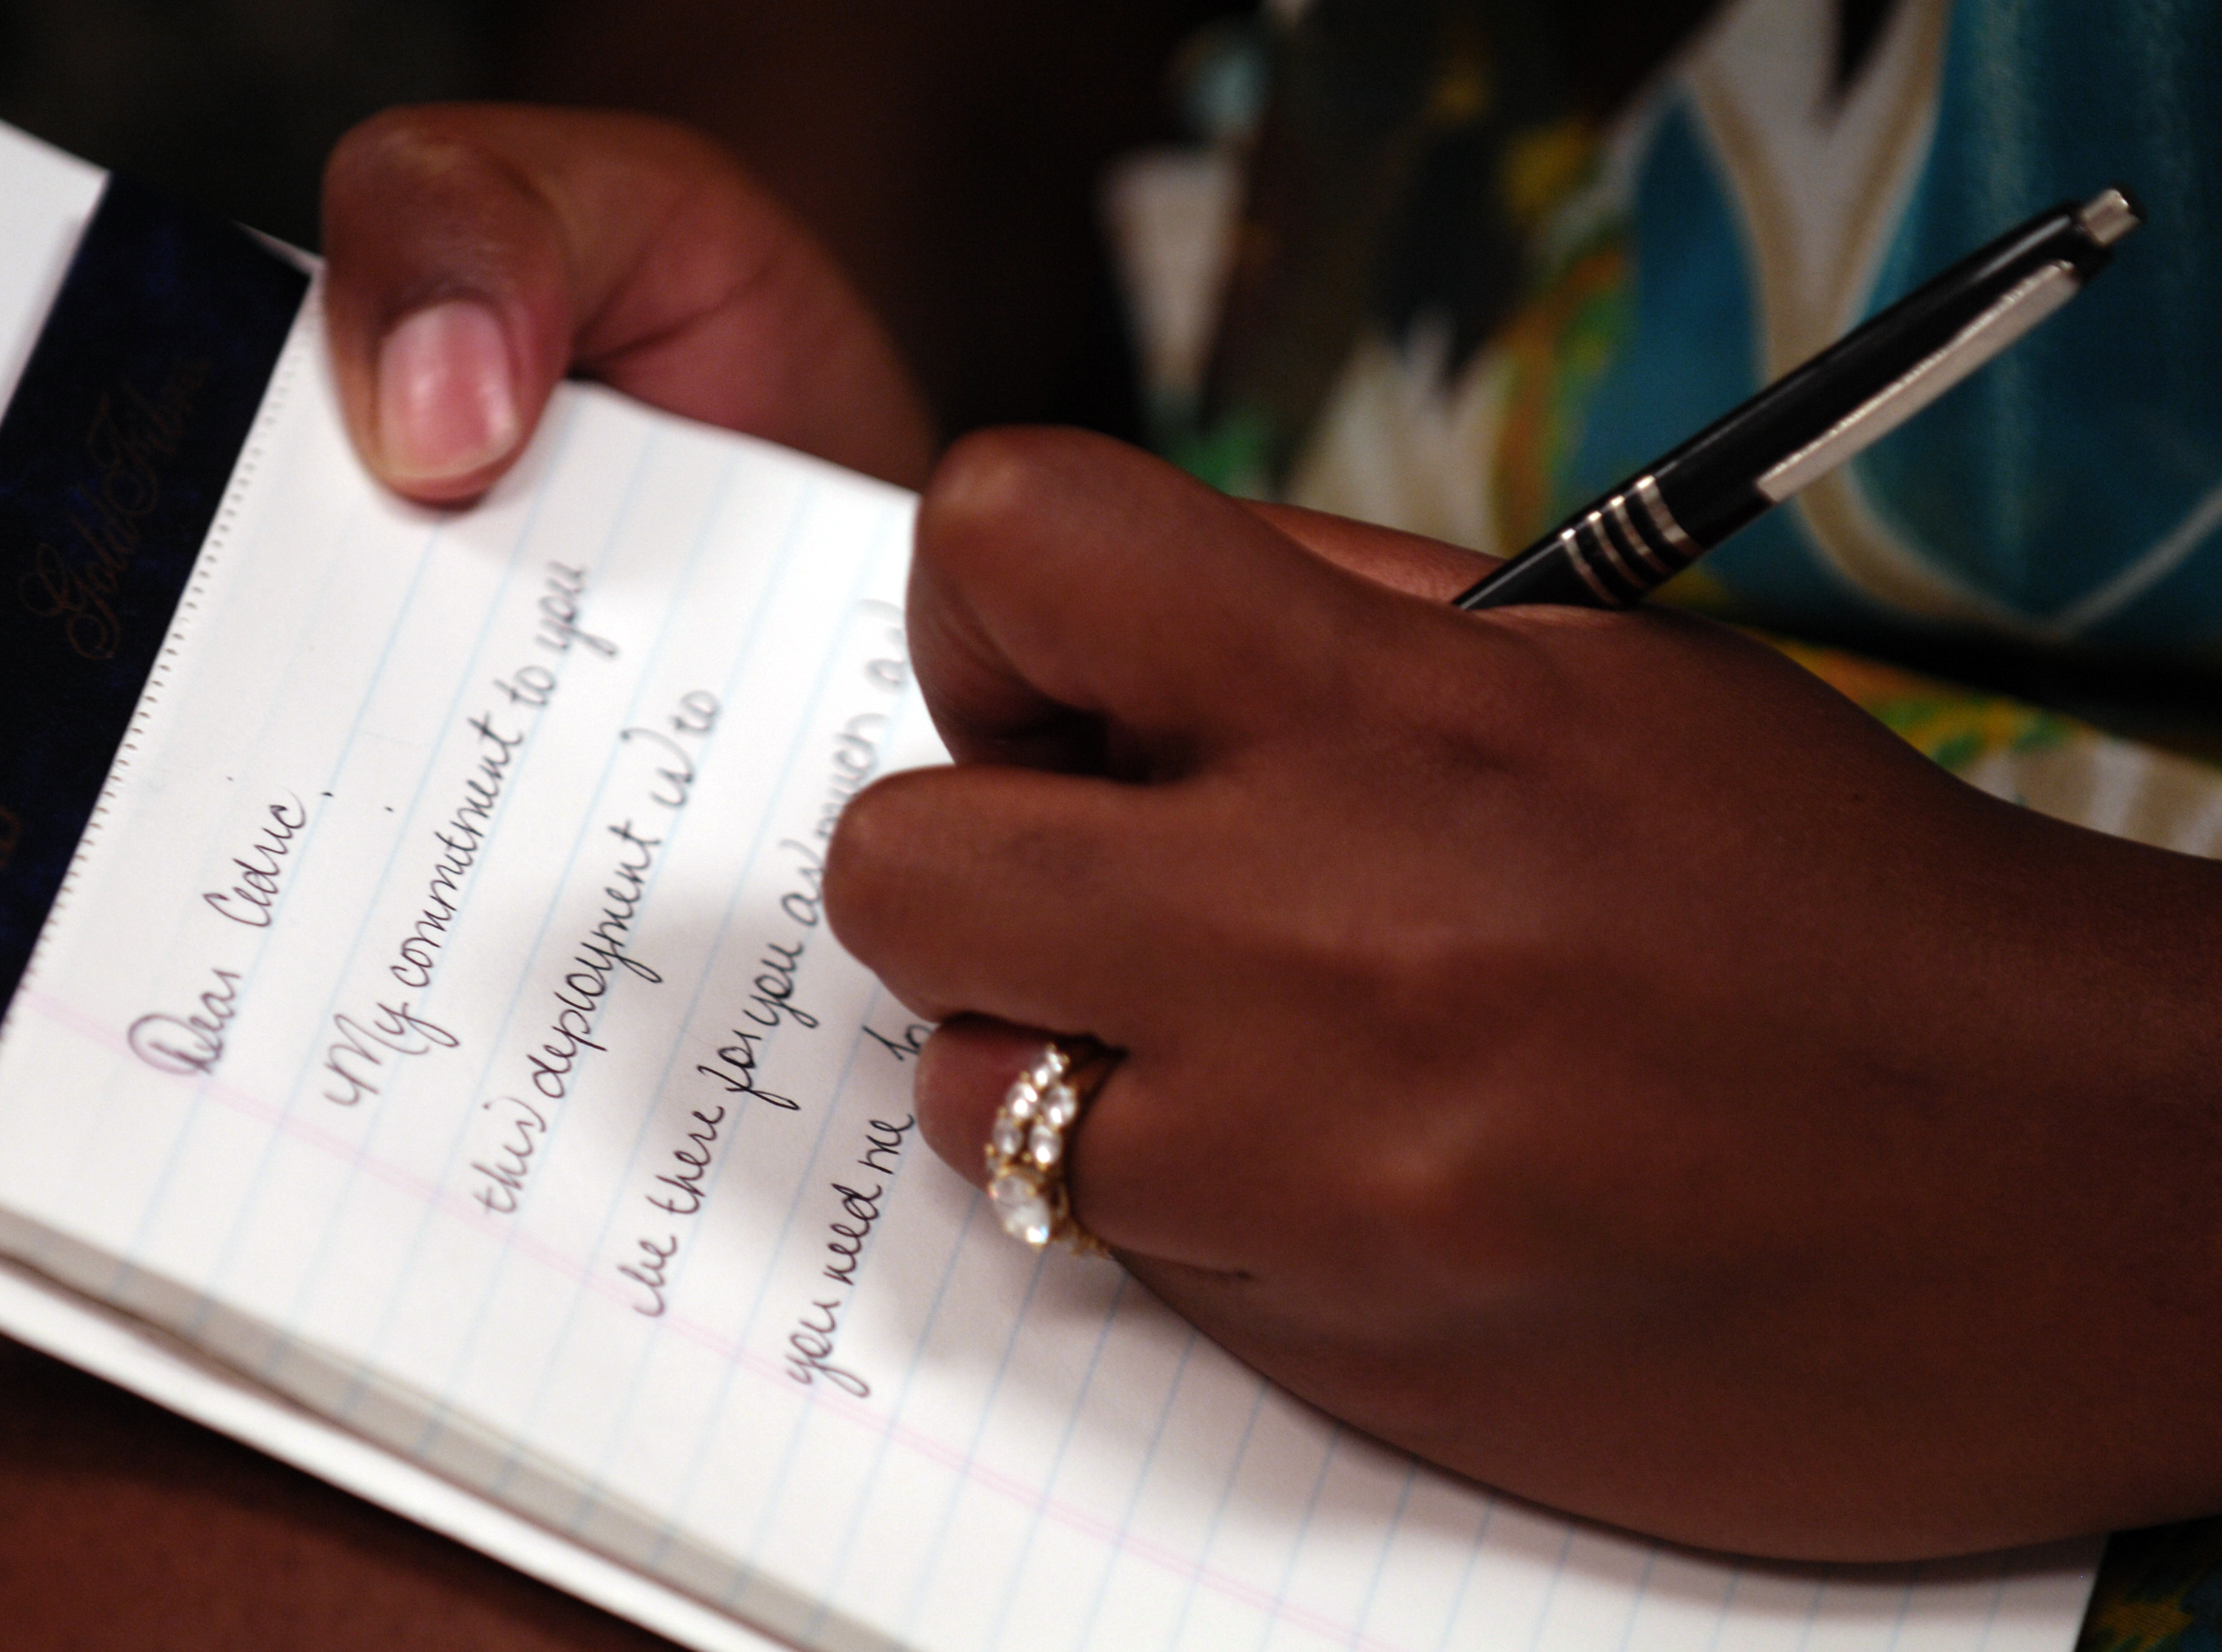 Gold Fibre
Dear Cedric,
My commitment to you
this deployment is to
be there for you as much as
you need me to